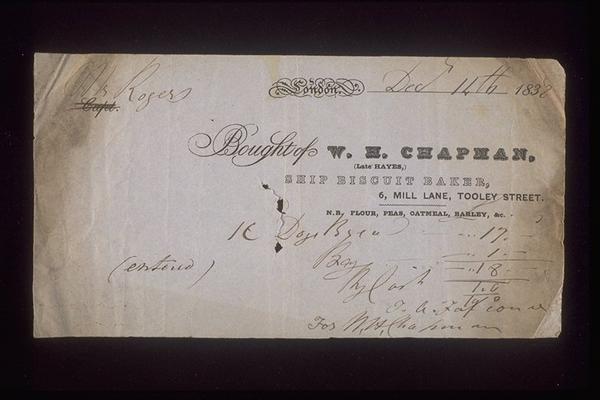 Mr Rogers
Capt.
London, Decr 14th 1838
Bought of W. H. CHAPMAN,
(Late HAYES,)
SHIP BISCUIT BAKER,
6, MILL LANE, TOOLEY STREET.
N.B. FLOUR, PEAS, OATMEAL, BARLEY, &c.
1 C Dogs Bread 17.
Bag 1.
18
By Cash
(entered)
For W. H. Chapman